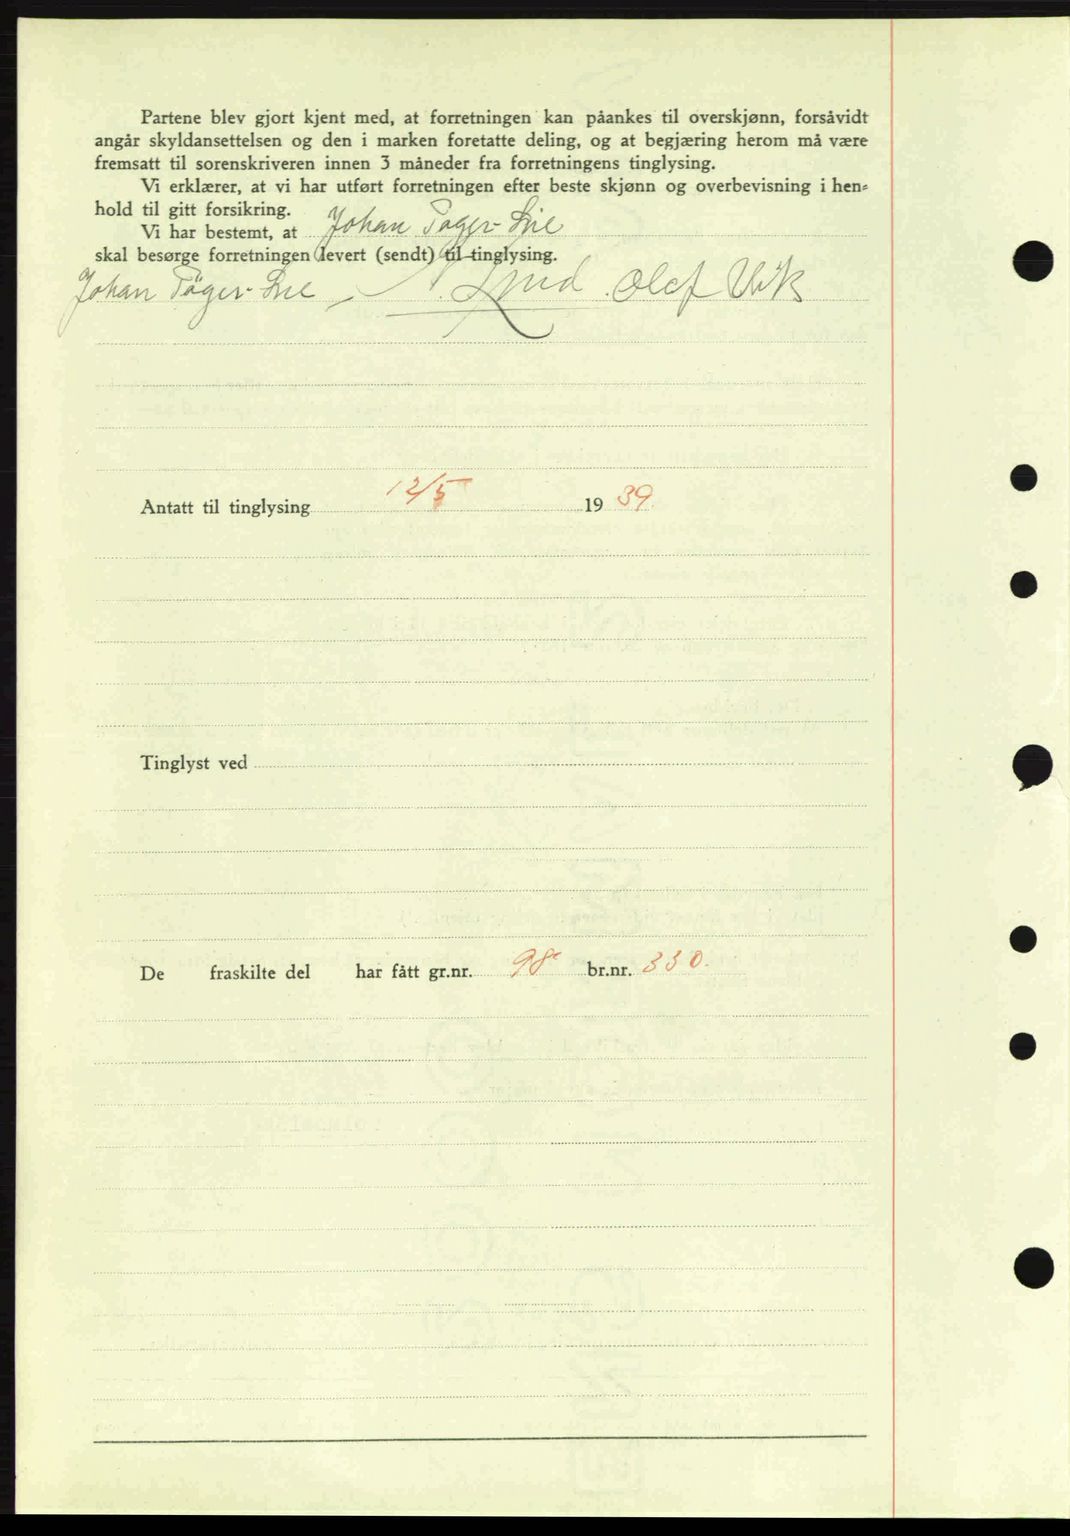 Partene blev gjort kjent med, at forretningen kan påankes til overskjønn, forsåvidt
angår skyldansettelsen og den i marken foretatte deling, og at begjæring herom må være
fremsatt til sorenskriveren innen 3 måneder fra forretningens tinglysing.
Vi erklærer, at vi har utført forretningen efter beste skjønn og overbevisning i hen=
hold til gitt forsikring.
Vi har bestemt, at Johan
skal besørge forretningen levert (sendt) til tinglysing.
Johan Lund Olef Vik
Antatt til tinglysing 12/5 19 39.
Tinglyst ved
De fraskilte del har fått gr.nr. 98 br.nr. 330.